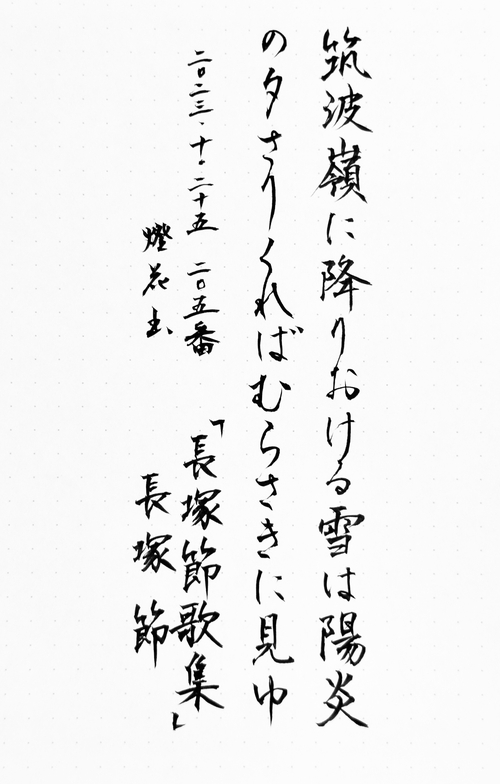 筑波嶺に降りおける雪は陽炎
の夕さりくればむらさきに見ゆ
二〇二三、十、二十五 二〇五番 『長塚節歌集』
燈花主 長塚節